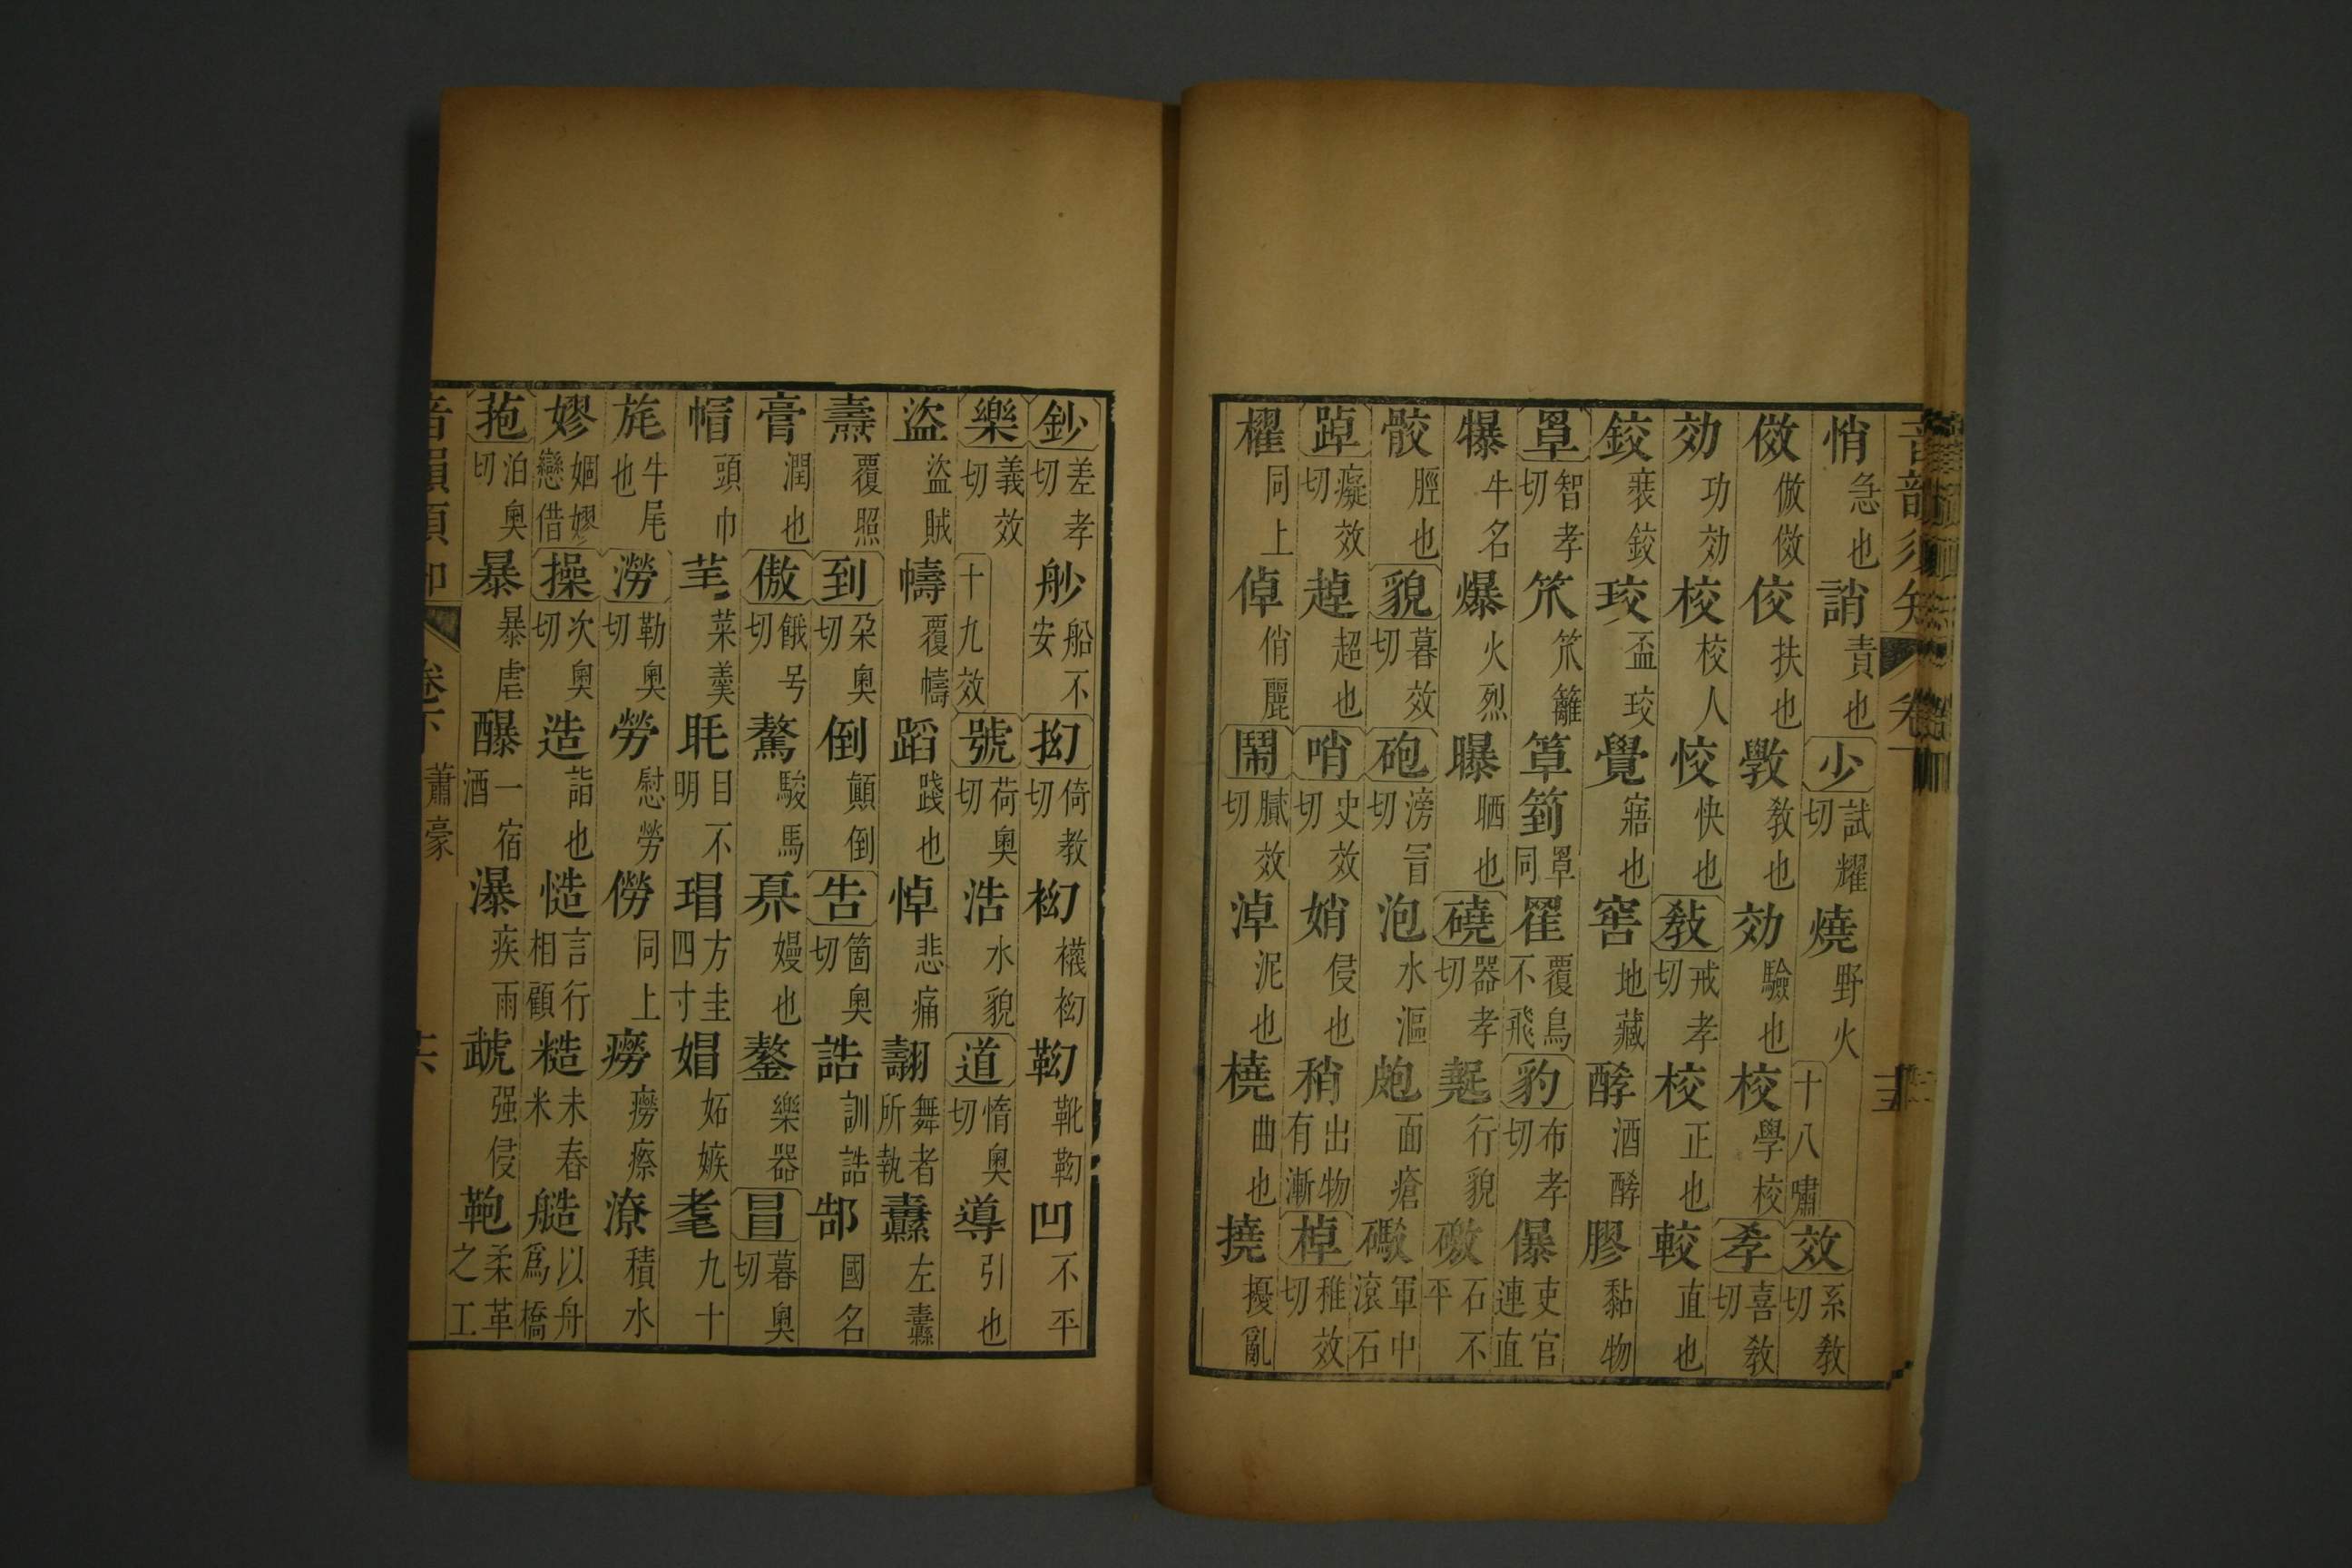 悄急也誚責也少試耀切燒野火十八嘯效系教切
傚倣傚佼扶也斆教也効驗也校學校孝喜教切
効功効校校人恔快也教戒孝切校正也較直也
鉸裝鉸珓盃珓覺寤也窖地藏酵酒酵膠黏物
罩智孝切笊笊籬箄箌罩同翟覆鳥不飛豹布孝切儤吏官連直
犦牛名爆火烈曝晒也磽器孝切趬行貌礉石不平
骹脛也貌暮效切砲滂冒切泡水漚皰面瘡礮軍中滾石
踔癡效切趠超也哨史效切娋侵也稍出物有漸棹稚效切
櫂同上倬俏麗鬧膩效切淖泥也橈曲也撓擾亂
鈔差孝切舩船不安抝倚教切袎襪袎靿靴靿凹不平
樂義效切十九效號荷奧切浩水貌道惰奧切導引也
盜盜賊幬覆幬蹈踐也悼悲痛翿舞者所執纛左纛
燾覆照到朶奧切倒顛倒告箇奧切誥訓誥郜國名
膏潤也傲餓号切驁駿馬奡嫚也鏊樂器冒暮奧切
帽頭巾芼菜羹眊目不明瑁方圭四寸媢妬嫉耄九十
旄牛尾也澇勒奧切勞慰勞僗同上癆癆瘵潦積水
嫪婟嫪戀借操次奧切造詣也慥言行相顧糙未舂米艁以舟爲橋
菢泊奧切暴暴虐醥一宿酒瀑疾雨虣强侵鞄柔革之工
卷下 蕭豪